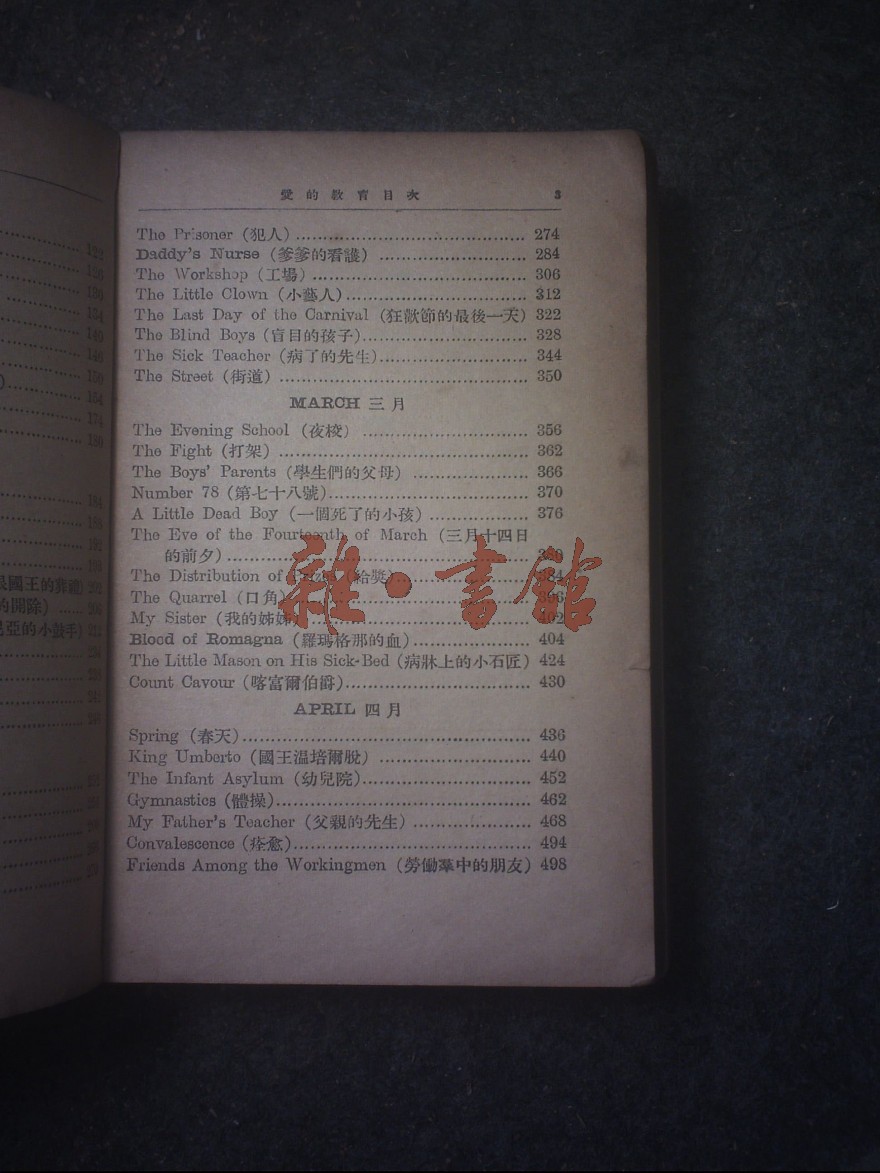 愛的教育目次 3
The Prisoner (犯人) 274
Daddy's Nurse (爹爹的看護) 284
The Workshop (工場) 306
The Little Clown (小藝人) 312
The Last Day of the Carnival (狂歡節的最後一天) 322
The Blind Boys (盲目的孩子) 328
The Sick Teacher (病了的先生) 344
The Street (街道) 350
MARCH 三月
The Evening School (夜校) 356
The Fight (打架) 362
The Boys' Parents (學生們的父母) 366
Number 78 (第七十八號) 370
A Little Dead Boy (一個死了的小孩) 376
The Eve of the Fourteenth of March (三月十四日
的前夕)
The Distribution of (給獎)
The Quarrel (口角)
My Sister (我的姊姊)
Blood of Romagna (羅瑪格那的血) 404
The Little Mason on His Sick-Bed (病牀上的小石匠) 424
Count Cavour (喀富爾伯爵) 430
APRIL 四月
Spring (春天) 436
King Umberto (國王温培爾脫) 440
The Infant Asylum (幼兒院) 452
Gymnastics (體操) 462
My Father's Teacher (父親的先生) 468
Convalescence (痊愈) 494
Friends Among the Workingmen (勞働羣中的朋友) 498
雜·書館
國王的葬禮)
的開除) 206
亞的小鼓手) 212